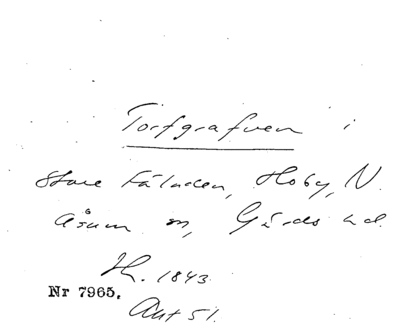 Torfgrafven i
Stora Fäladen, Hoby, N.
Åsum sn, Gärds hd.
H. 1843
Nr 7965.
Ant 51.